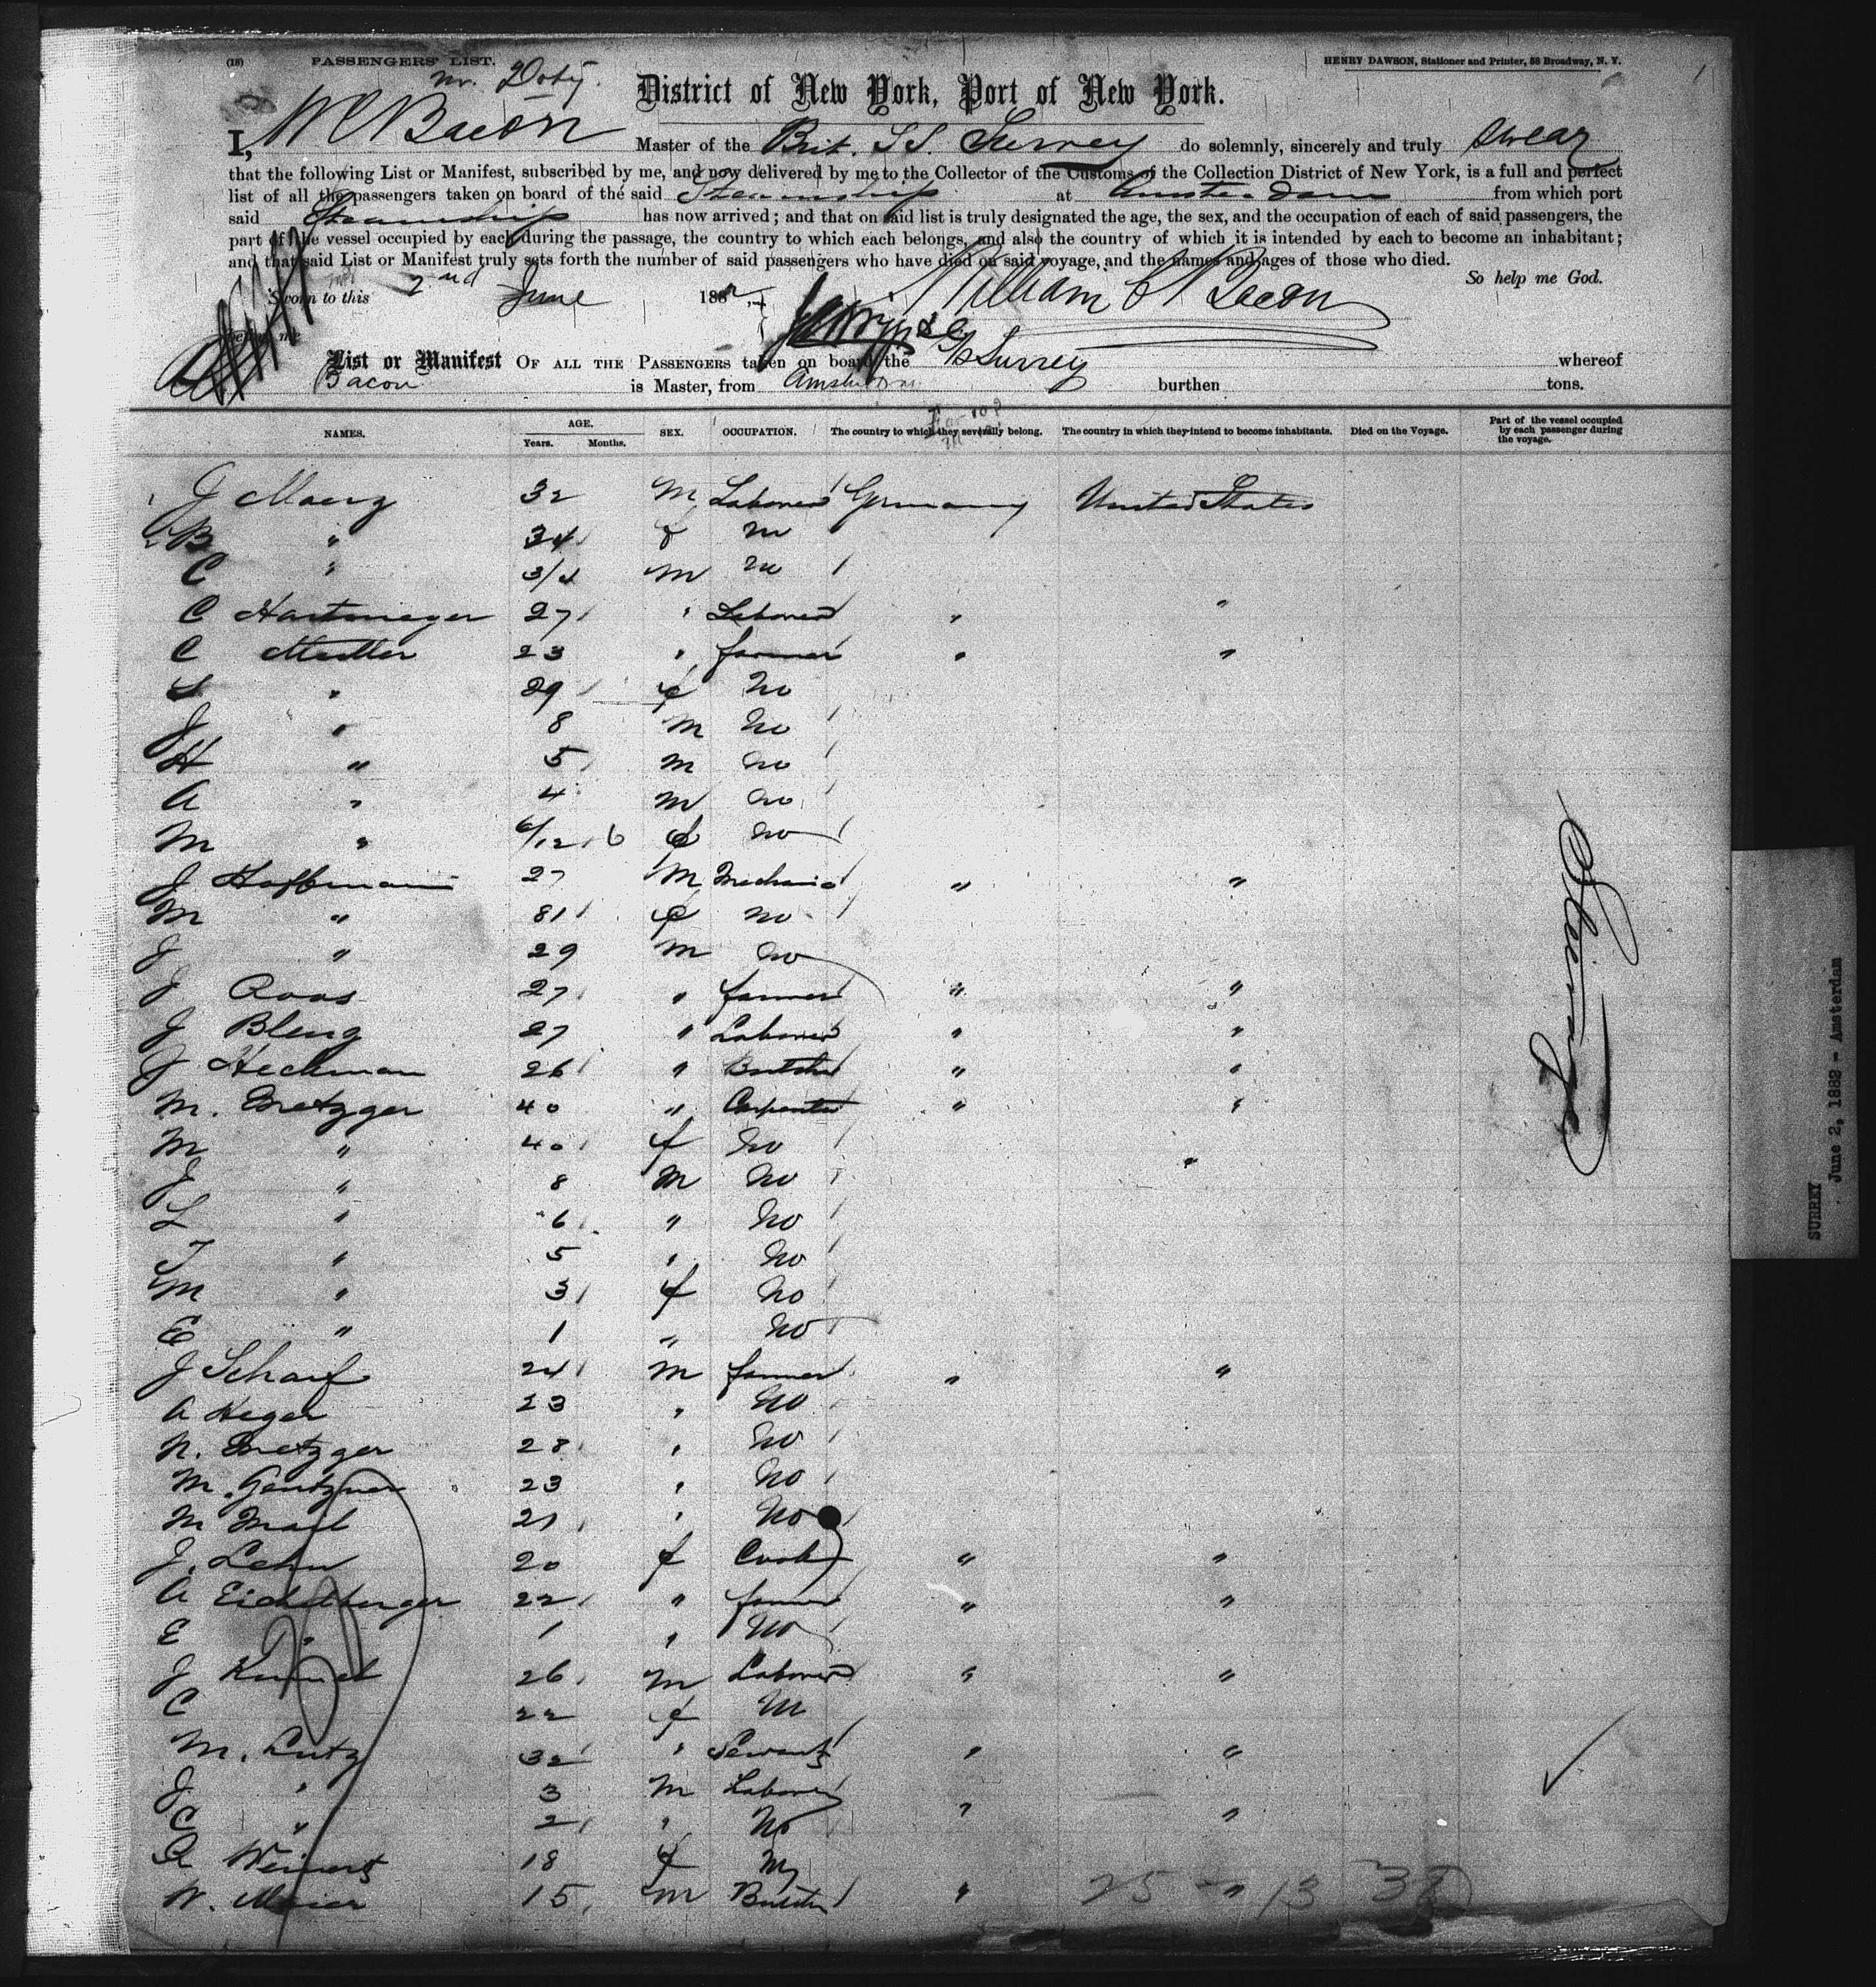 (18) PASSENGERS' LIST.
HENRY DAWSON, Stationer and Printer, 58 Broadway, N. Y.
1
Mr. Doty.
District of New York, Port of New York.
I, W C Bacon Master of the Brit. S S. Surrey do solemnly, sincerely and truly swear
that the following List or Manifest, subscribed by me, and now delivered by me to the Collector of the Customs of the Collection District of New York, is a full and perfect
list of all the passengers taken on board of the said Steamship at Amsterdam from which port
said Steamship has now arrived; and that on said list is truly designated the age, the sex, and the occupation of each of said passengers, the
part of the vessel occupied by each during the passage, the country to which each belongs, and also the country of which it is intended by each to become an inhabitant;
and that said List or Manifest truly sets forth the number of said passengers who have died on said voyage, and the names and ages of those who died.
So help me God.
Sworn to this 2nd June 1882
William Bacon
before me
List or Manifest OF ALL THE PASSENGERS taken on board the S/s Surrey whereof
Bacon is Master, from Amsterdam burthen tons.
NAMES. AGE. Years. Months. SEX. OCCUPATION. The country to which they severally belong. The country in which they intend to become inhabitants. Died on the Voyage. Part of the vessel occupied by each passenger during the voyage.
1 J 32 M Laborer Germany United States
2 B " 34 f no
C " 3/4 M no
C Hartmeyer 27 " Laborer " "
C Muller 23 " farmer " "
S " 29 f no
J " 8 M no
H " 5 M no
A " 4 M no
M " 6/12 6 f no
J Hoffmann 27 M Mechanic " "
M " 81 f no
J " 29 M no
J Roos 27 " farmer " "
J 27 " Laborer " "
J Heckman 26 " Butcher " "
M. Metzger 40 " Carpenter " "
M " 40 f no
J " 8 M no "
L " 6 " no
J " 5 " no
M " 3 f no
E " 1 " no
J Scharf 24 M farmer " "
A Heger 23 " no
N. Metzger 28 " no
M. 23 " no
M 21 " no
J. Lehn 20 f Cook " "
A Eichelberger 22 " farmer " "
E " 1 " no
J Kummel 26 M Laborer " "
C 22 f no
M. Lutz 32 " Servant " "
J " 3 M Laborer
C " 2 " No " "
A 18 f no
W. Maier 15 M Butcher " "
25 - 13 38
Steerage
SURREY
June 2, 1882 - Amsterdam